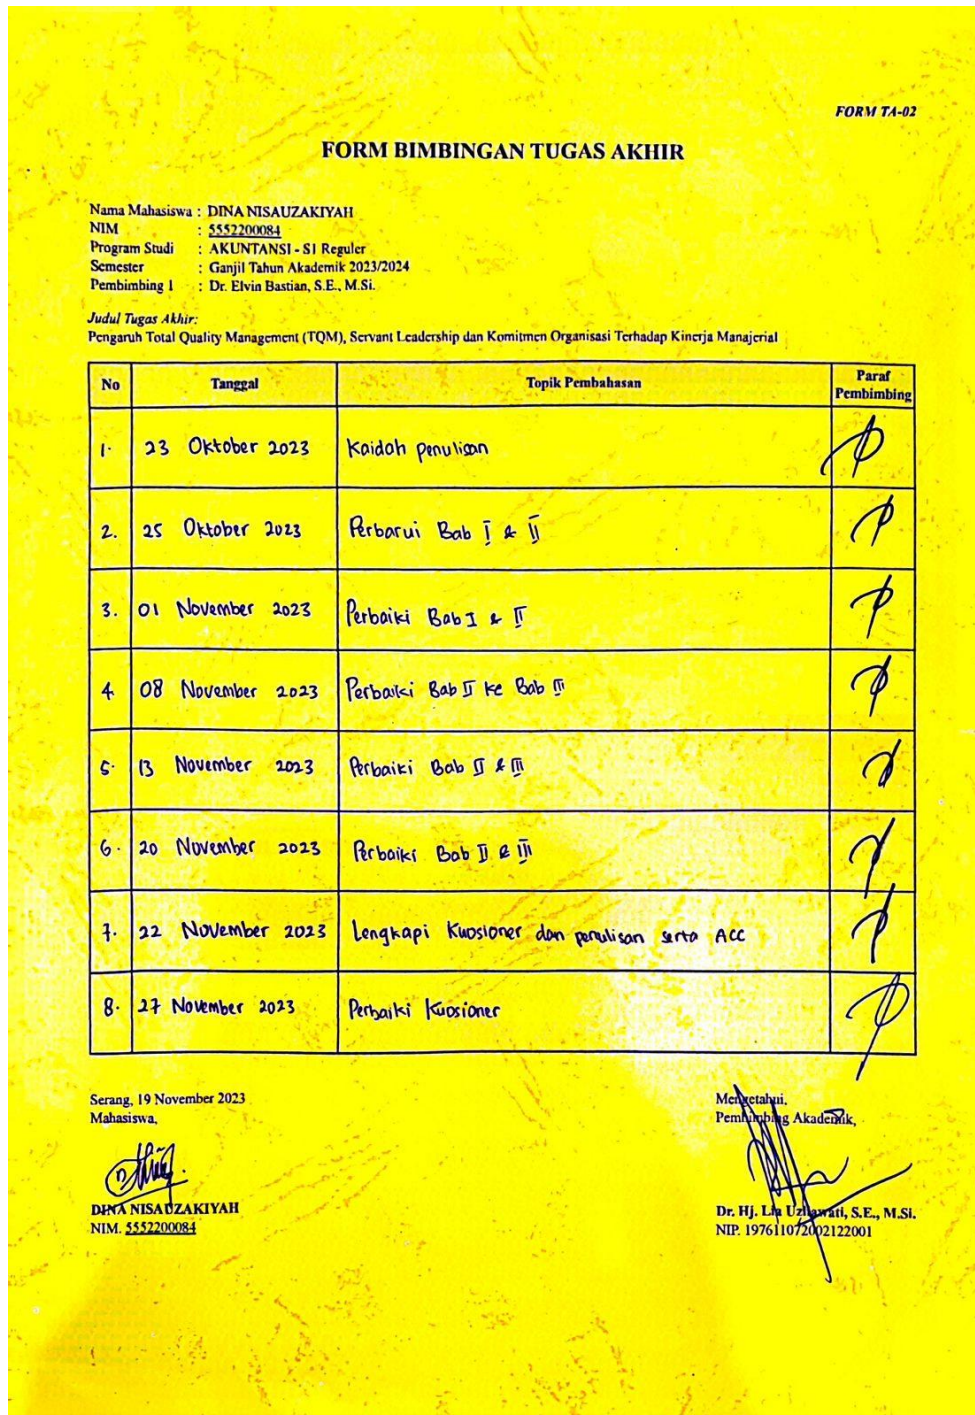 FORM TA-02
FORM BIMBINGAN TUGAS AKHIR
Nama Mahasiswa : DINA NISAUZAKIYAH
NIM : 5552200084
Program Studi : AKUNTANSI - S1 Reguler
Semester : Ganjil Tahun Akademik 2023/2024
Pembimbing 1 : Dr. Elvin Bastian, S.E., M.Si.
Judul Tugas Akhir:
Pengaruh Total Quality Management (TQM), Servant Leadership dan Komitmen Organisasi Terhadap Kinerja Manajerial
No Tanggal Topik Pembahasan Paraf Pembimbing
1. 23 Oktober 2023 Kaidah penulisan
2. 25 Oktober 2023 Perbarui Bab I & II
3. 01 November 2023 Perbaiki Bab I & II
4. 08 November 2023 Perbaiki Bab II ke Bab III
5. 13 November 2023 Perbaiki Bab II & III
6. 20 November 2023 Perbaiki Bab II & III
7. 22 November 2023 Lengkapi Kuosioner dan penulisan serta ACC
8. 27 November 2023 Perbaiki Kuosioner
Serang, 19 November 2023
Mahasiswa,
DINA NISAUZAKIYAH
NIM. 5552200084
Mengetahui,
Pembimbing Akademik,
Dr. Hj. Lia Uzliawati, S.E., M.Si.
NIP. 197611072002122001